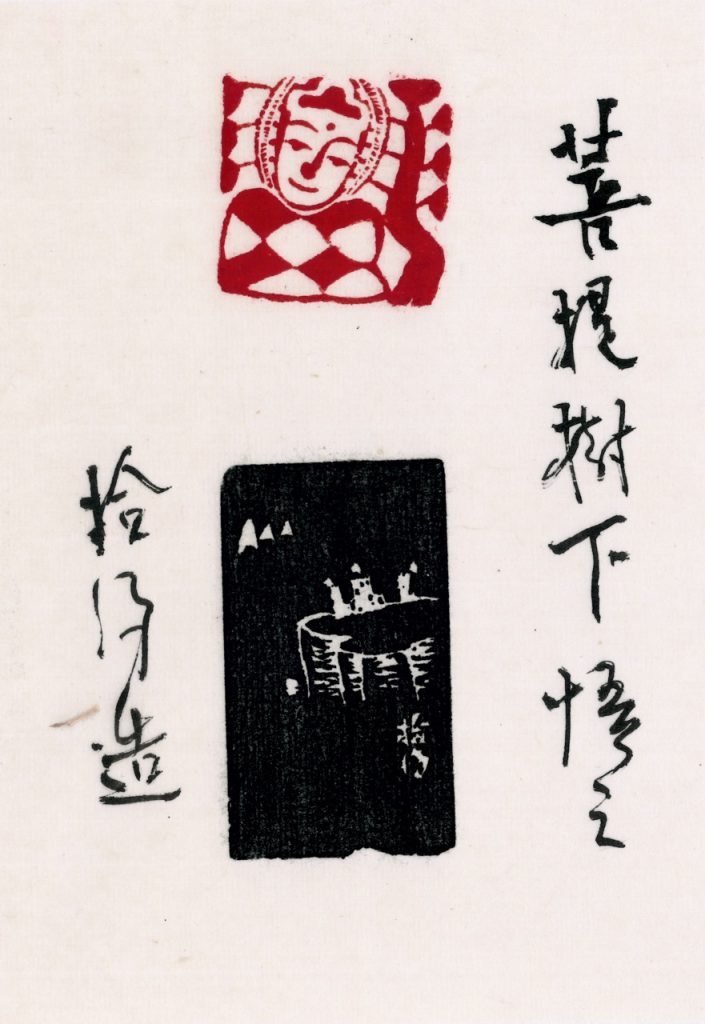 菩提樹下悟之
拾得造
拾得